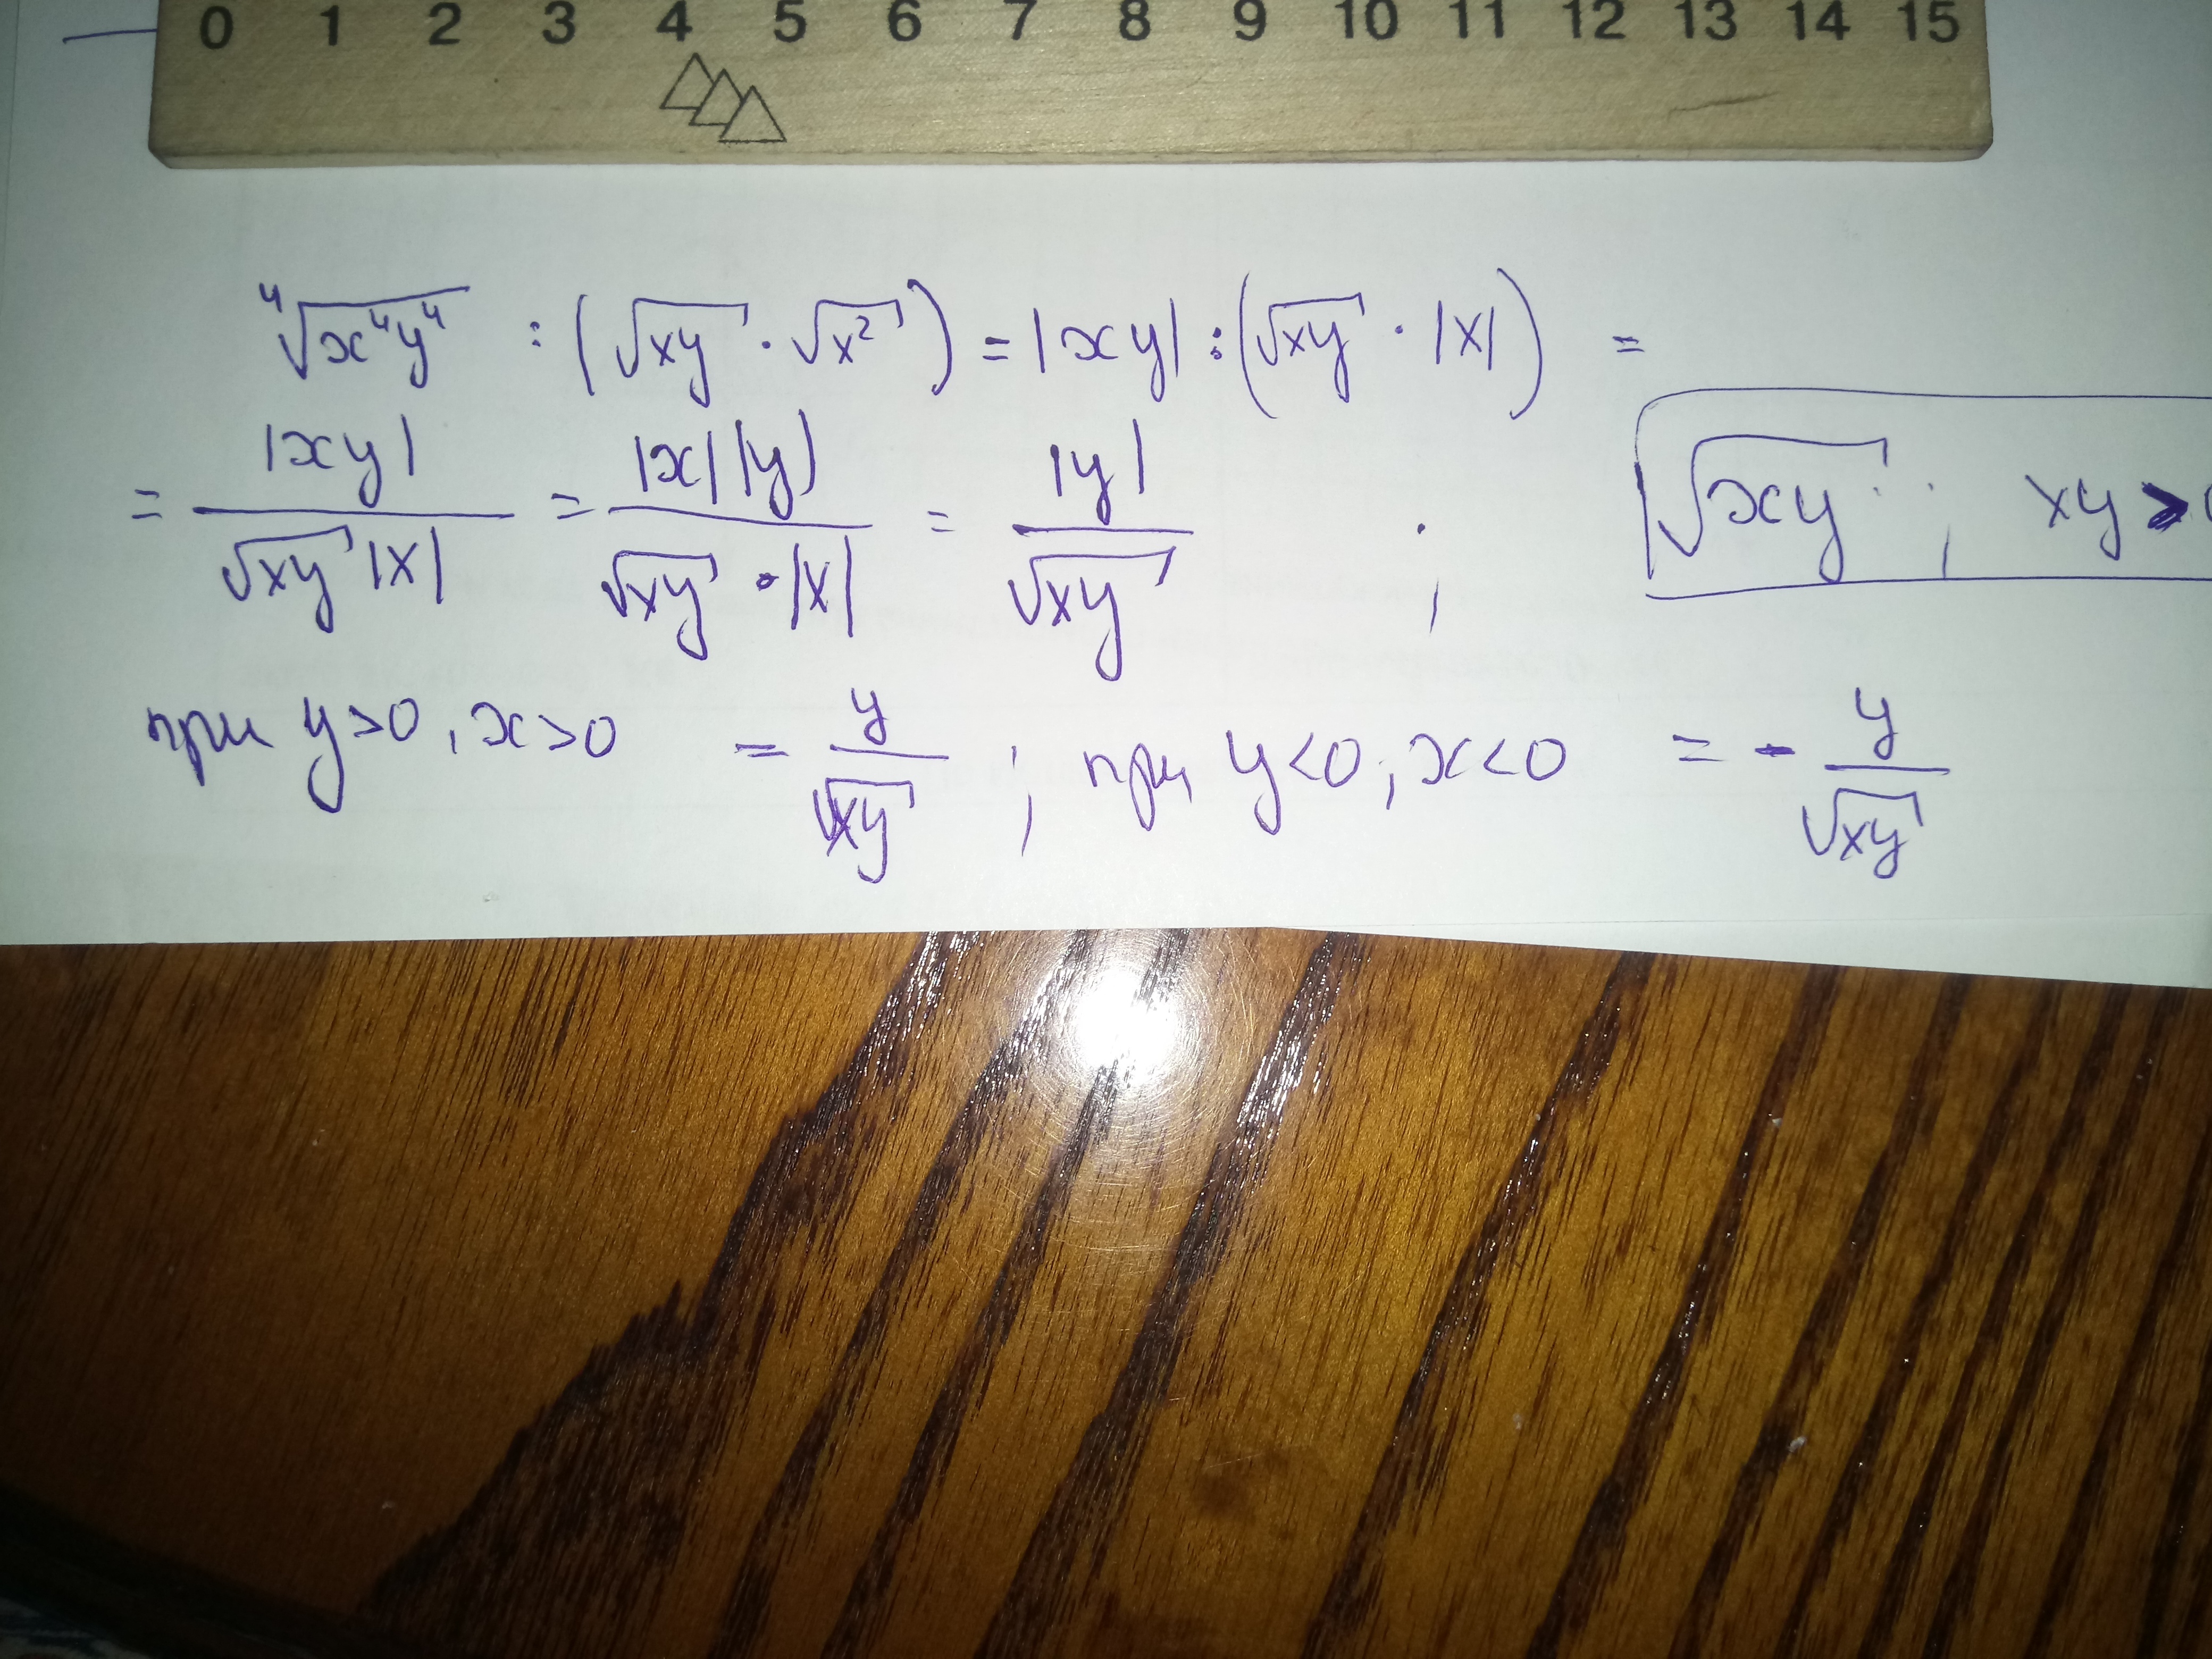 0 1 2 3 4 5 6 7 8 9 10 11 12 13 14 15
⁴√(x⁴y⁴) : (√(xy) · √(x²)) = |xy| : (√(xy) · |x|) =
= |xy| / (√(xy) |x|) = |x| |y| / (√(xy) · |x|) = |y| / √(xy) ;
√(xy) ; xy >
при y>0, x>0 = y / √(xy) ; при y<0, x<0 = - y / √(xy)